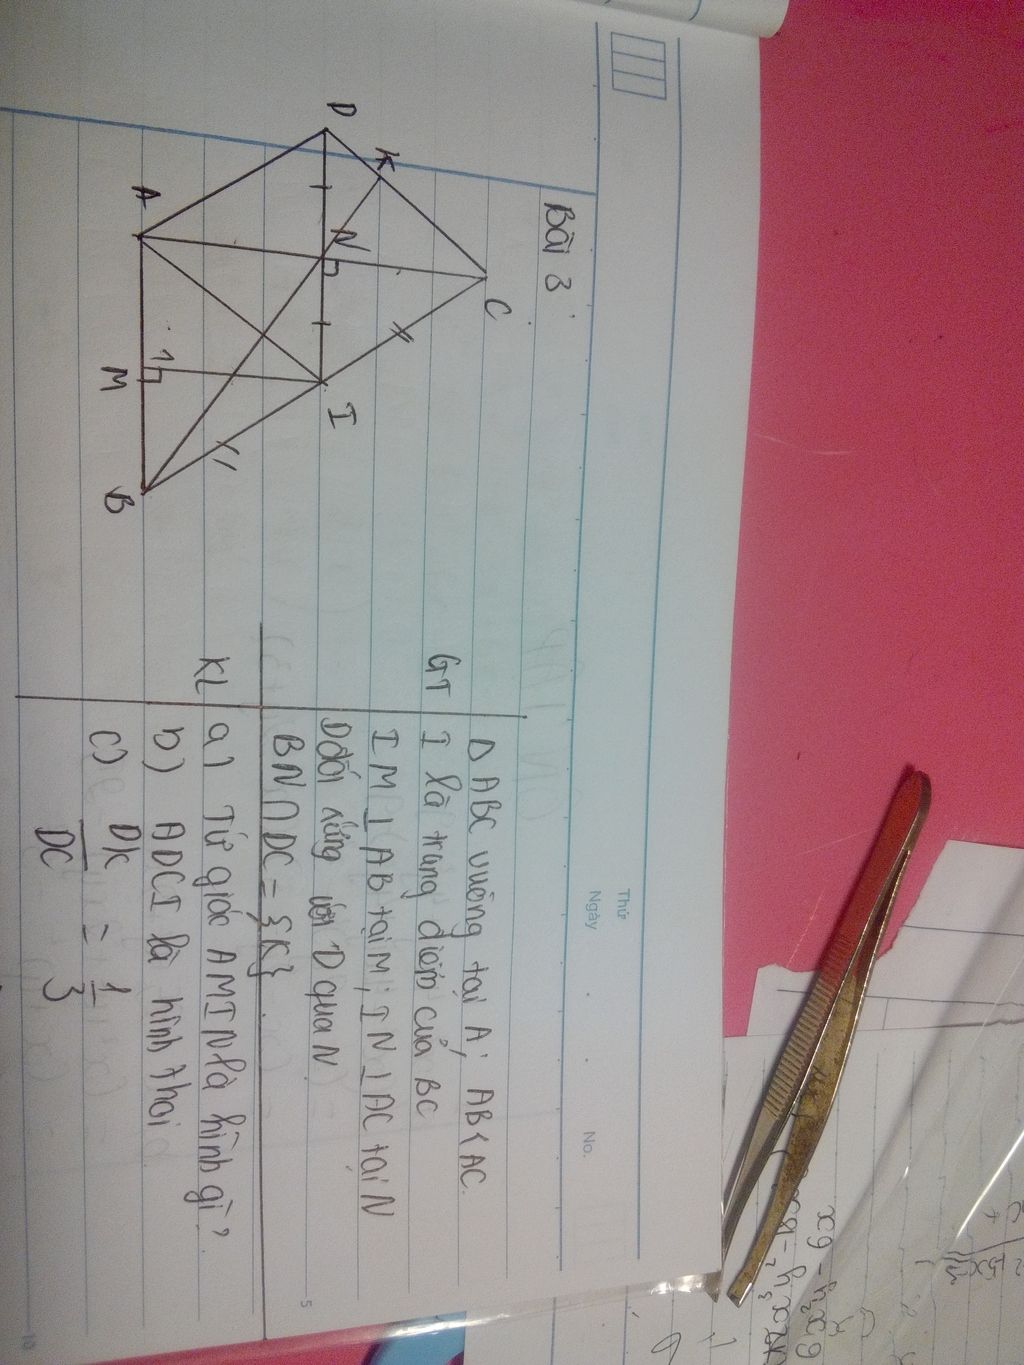 Thứ
Ngày
No.
Bài 3
D
K
C
N
I
A
M
1
B
GT
Δ ABC vuông tại A; AB < AC.
I là trung điểm của BC
IM ⊥ AB tại M; IN ⊥ AC tại N
D đối xứng với D qua N
BN ∩ DC = {K}
KL
a) Tứ giác AMIN là hình gì?
b) ADCI là hình thoi
c) DK/DC = 1/3
5
10